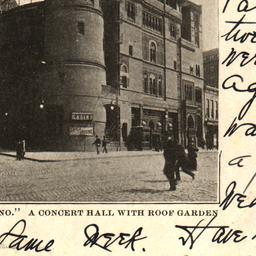 CASINO
NO." A CONCERT HALL WITH ROOF GARDEN
two
wer
ag
wa
a
We
Same Week. Have